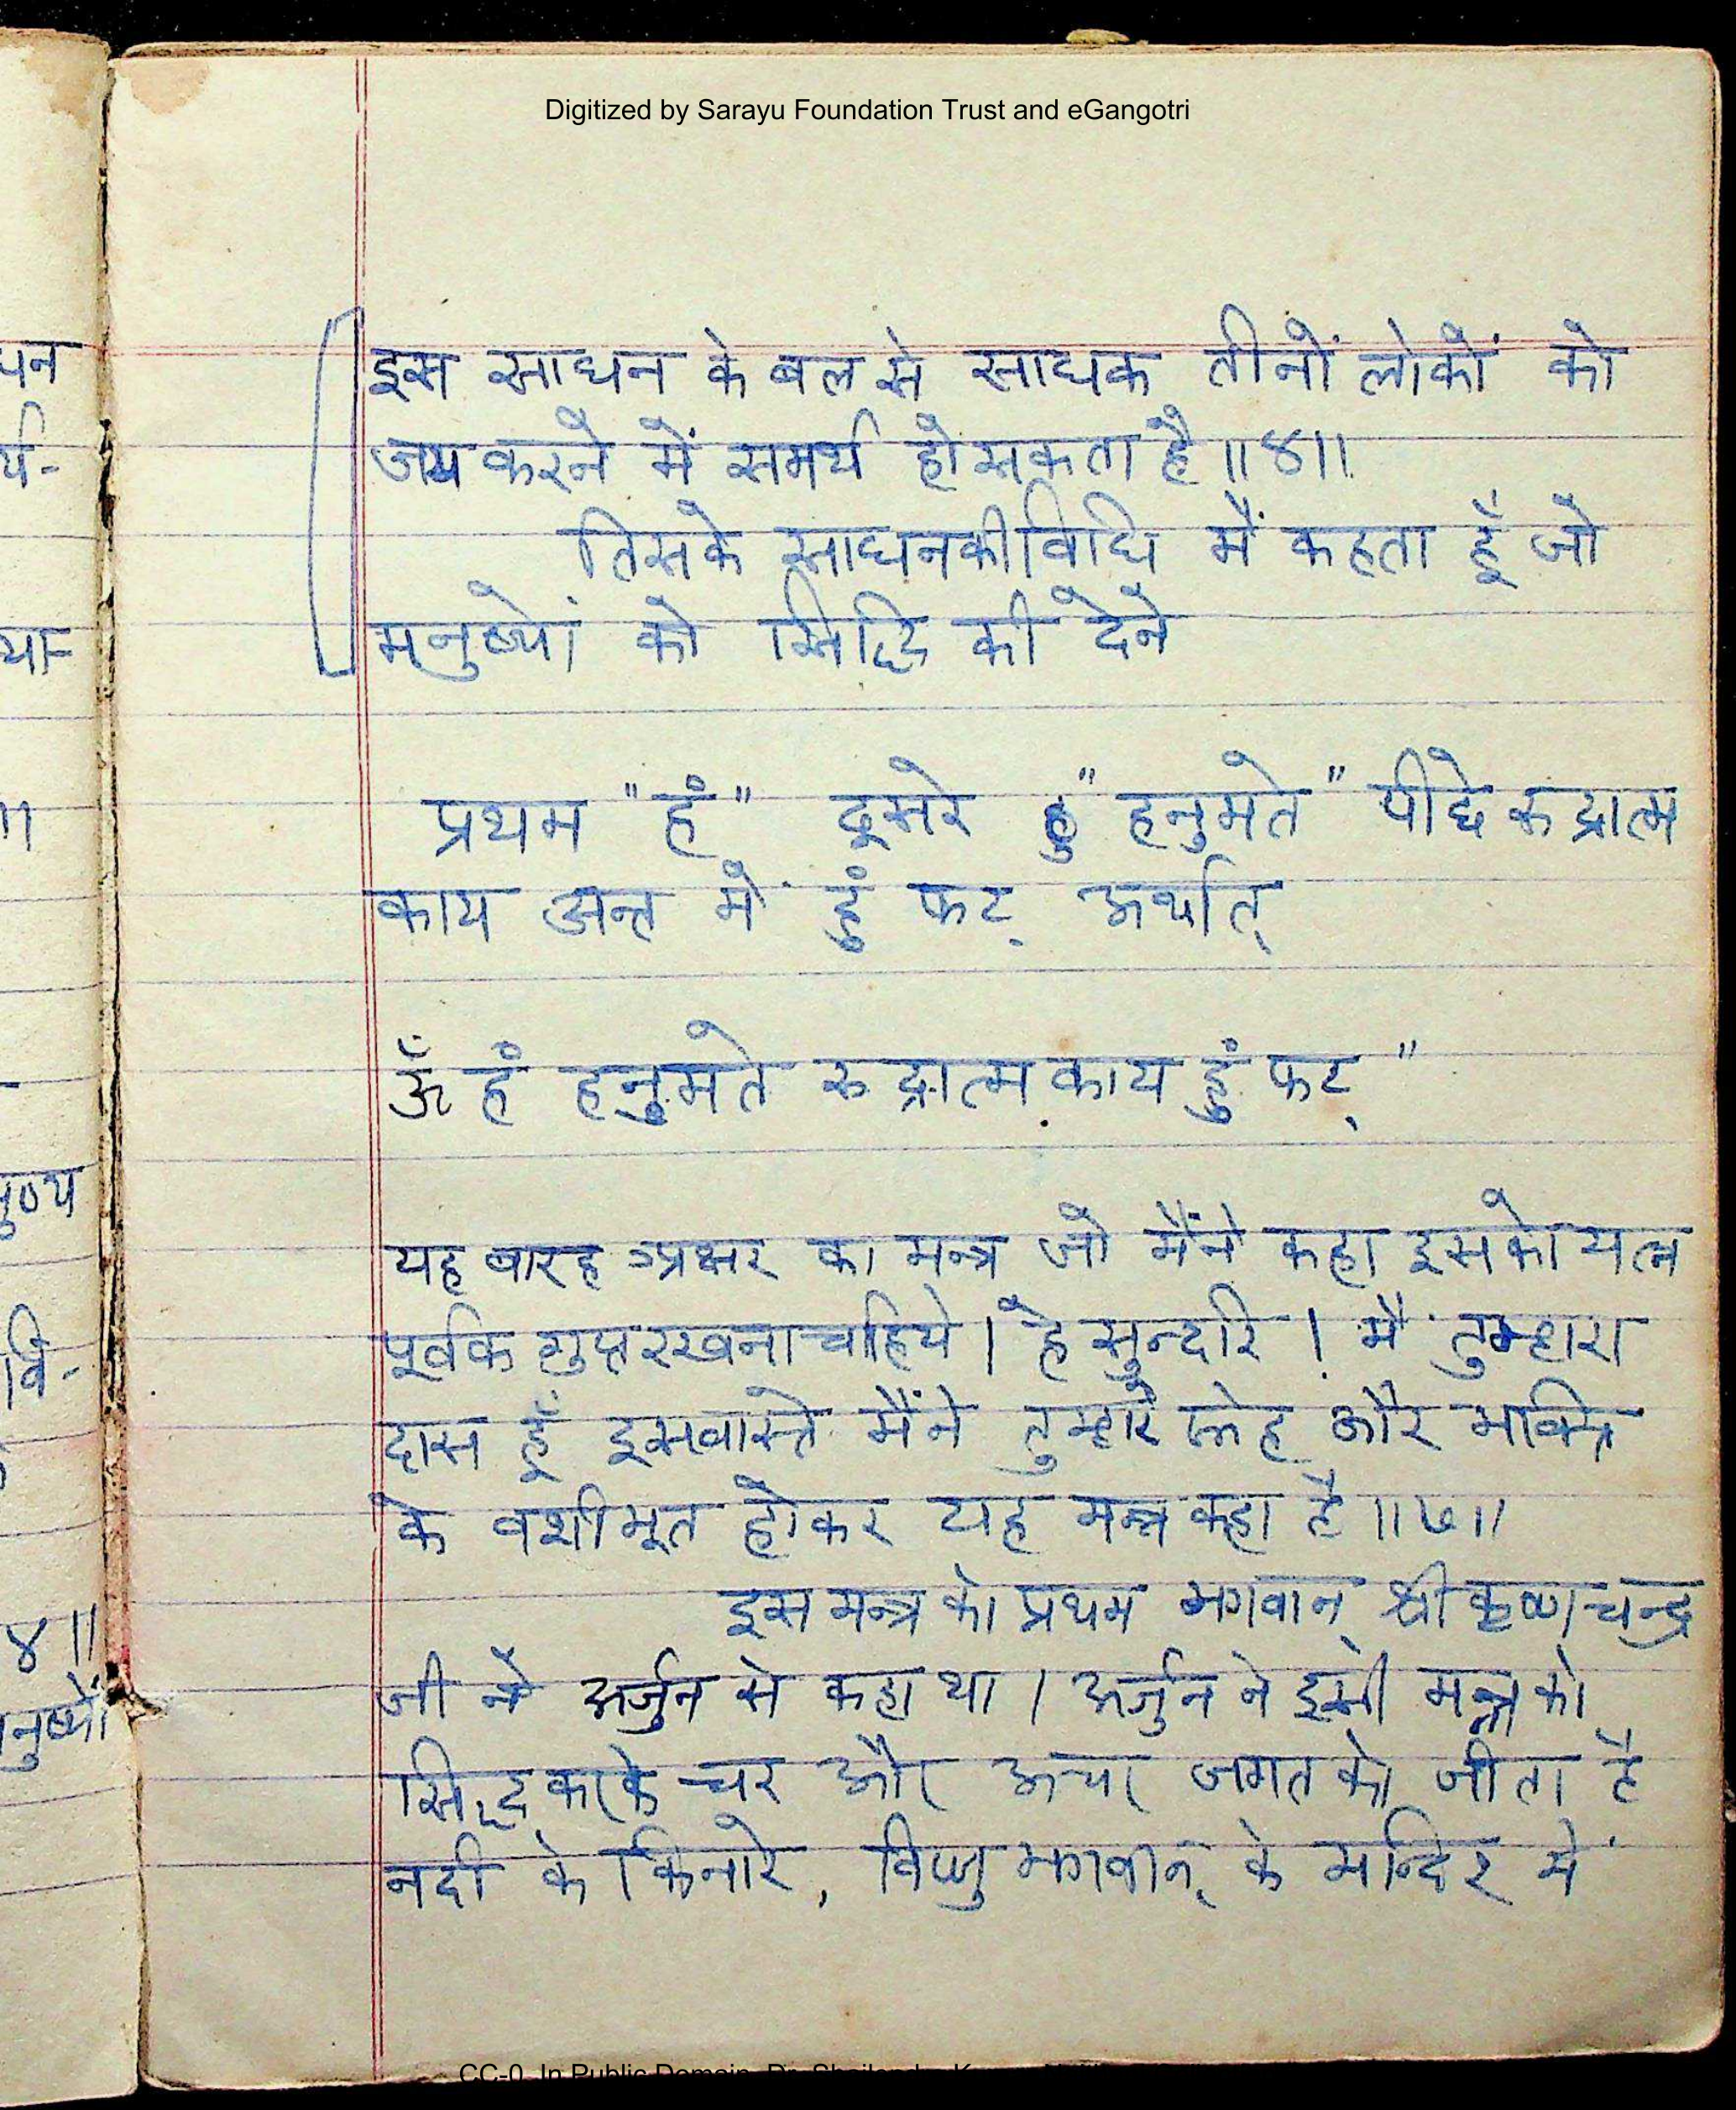 Digitized by Sarayu Foundation Trust and eGangotri
इस साधन के बल से साधक तीनों लोकों को
जय करने में समर्थ हो सकता है ॥४॥
तिसके साधन की विधि मैं कहता हूँ जो
मनुष्यों को सिद्धि की देने
प्रथम "हं" दूसरे "हनुमते" पीछे रुद्रात्म
काय अन्त में हुं फट् अर्थात्
ॐ हं हनुमते रुद्रात्मकाय हुं फट्"
यह बारह अक्षर का मन्त्र जो मैंने कहा इसको यत्न
पूर्वक गुप्त रखना चहिये । हे सुन्दरि । मैं तुम्हारा
दास हूँ इसवास्ते मैंने तुम्हारे स्नेह और भक्ति
के वशीभूत होकर यह मन्त्र कहा है ॥७॥
इस मन्त्र को प्रथम भगवान् श्री कृष्णचन्द्र
जी ने अर्जुन से कहा था । अर्जुन ने इसी मन्त्र को
सिद्ध करके चर और अचर जगत को जीता है
नदी के किनारे, विष्णु भगवान् के मन्दिर में
पन
र्य-
था-
॥
पुण्य
वि-
४॥
मनुष्यों
CC-0. In Public Domain.